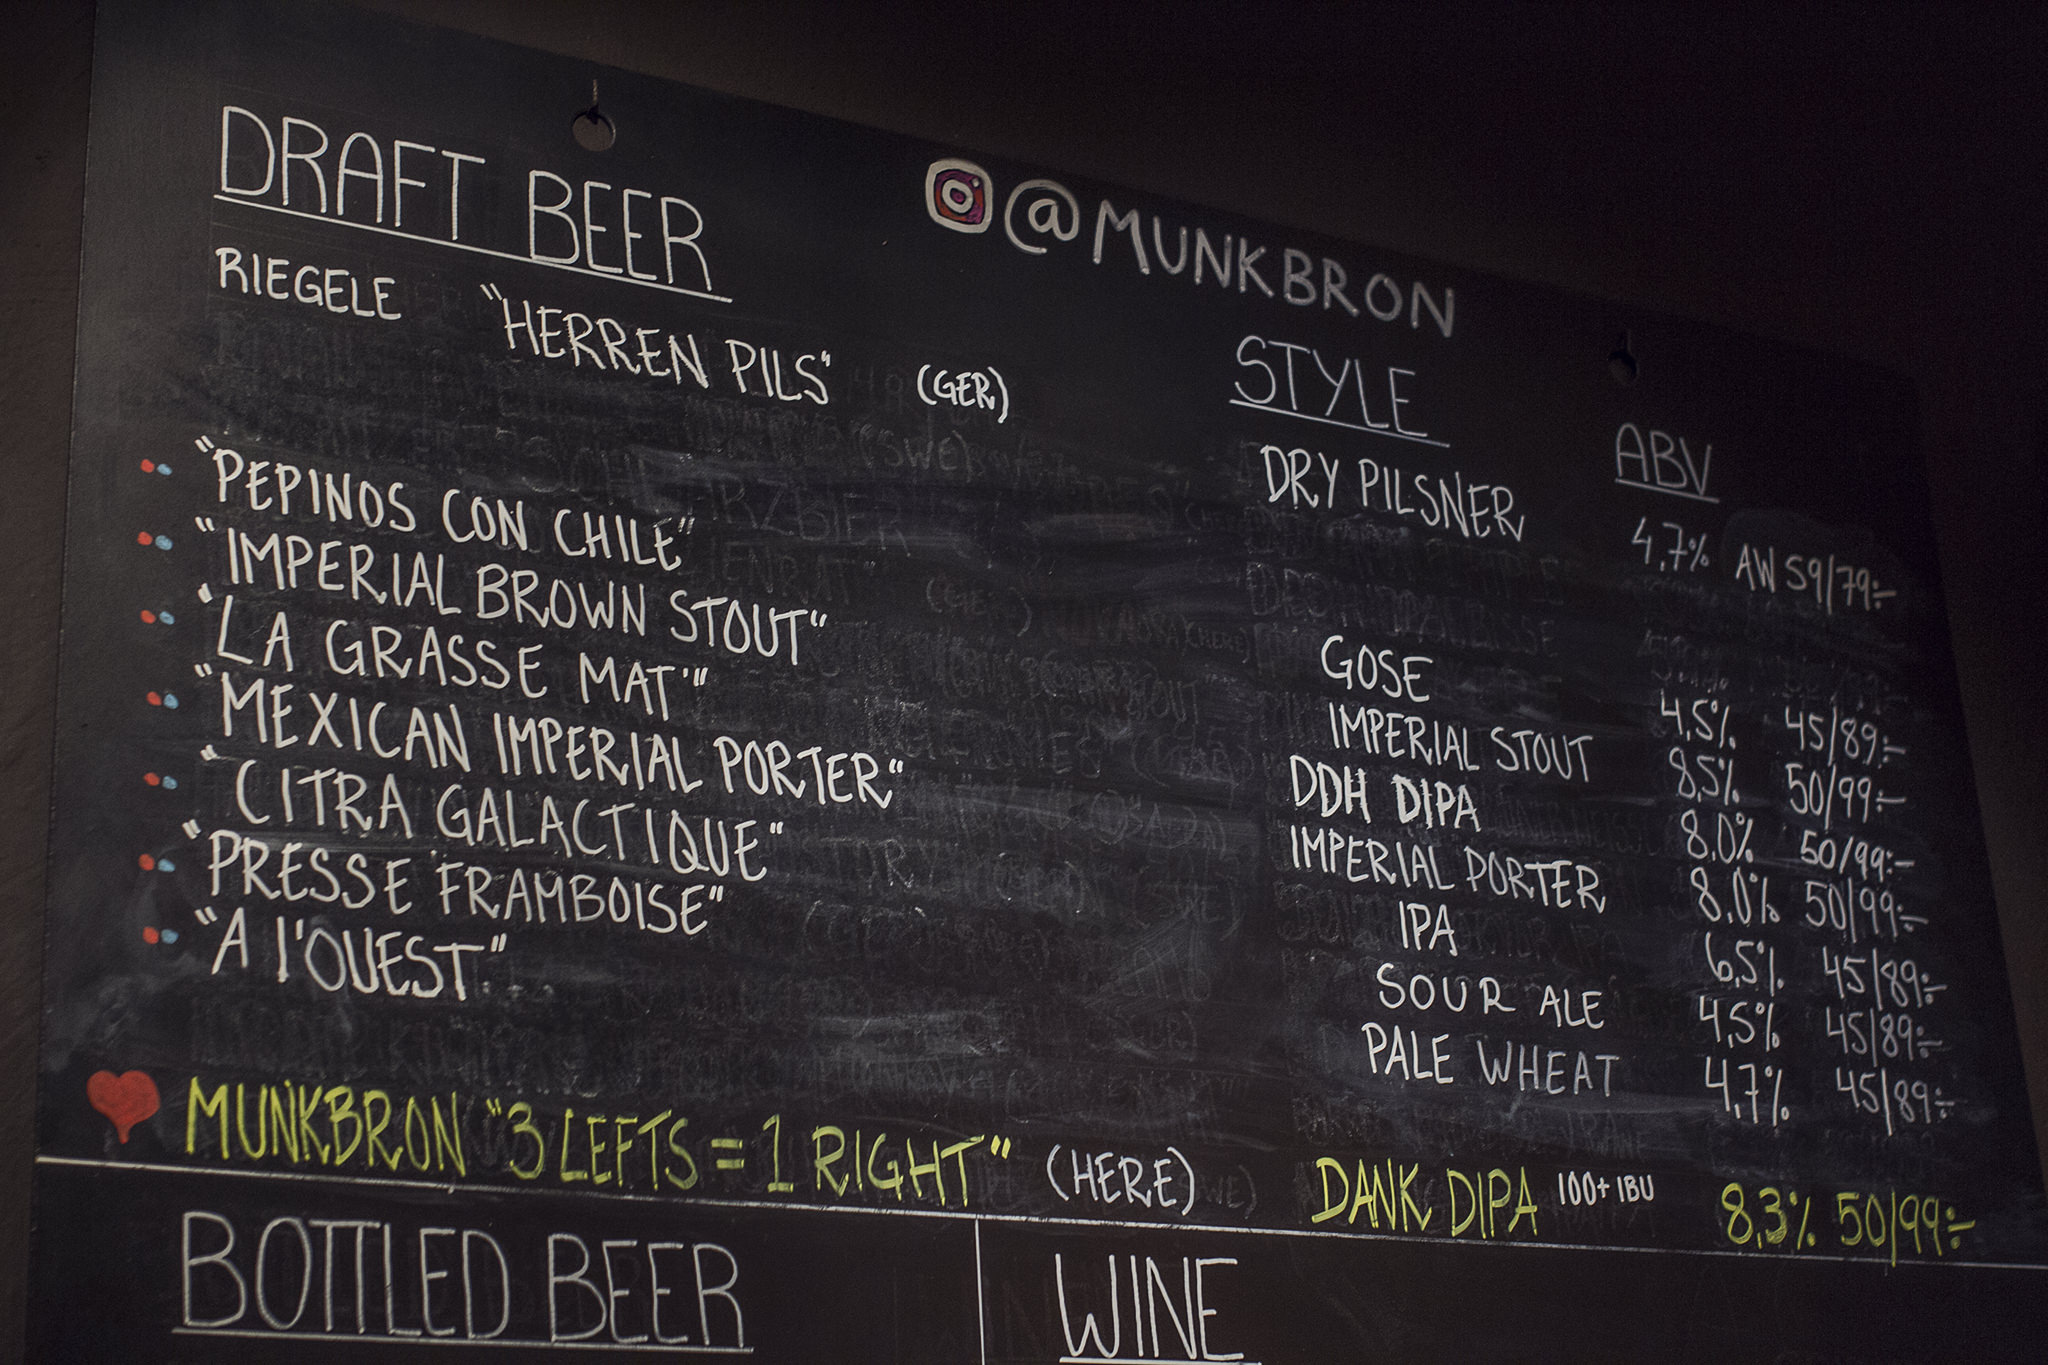 DRAFT BEER
@MUNKBRON
STYLE
ABV
RIEGELE "HERREN PILS" (GER) DRY PILSNER 4,7% AW 59/79:-
"PEPINOS CON CHILE" GOSE 4,5% 45/89:-
"IMPERIAL BROWN STOUT" IMPERIAL STOUT 8,5% 50/99:-
"LA GRASSE MAT'" DDH DIPA 8,0% 50/99:-
"MEXICAN IMPERIAL PORTER" IMPERIAL PORTER 8,0% 50/99:-
"CITRA GALACTIQUE" IPA 6,5% 45/89:-
"PRESSE FRAMBOISE" SOUR ALE 4,5% 45/89:-
"A l'OUEST" PALE WHEAT 4,7% 45/89:-
MUNKBRON "3 LEFTS = 1 RIGHT" (HERE) DANK DIPA 100+ IBU 8,3% 50/99:-
BOTTLED BEER
WINE